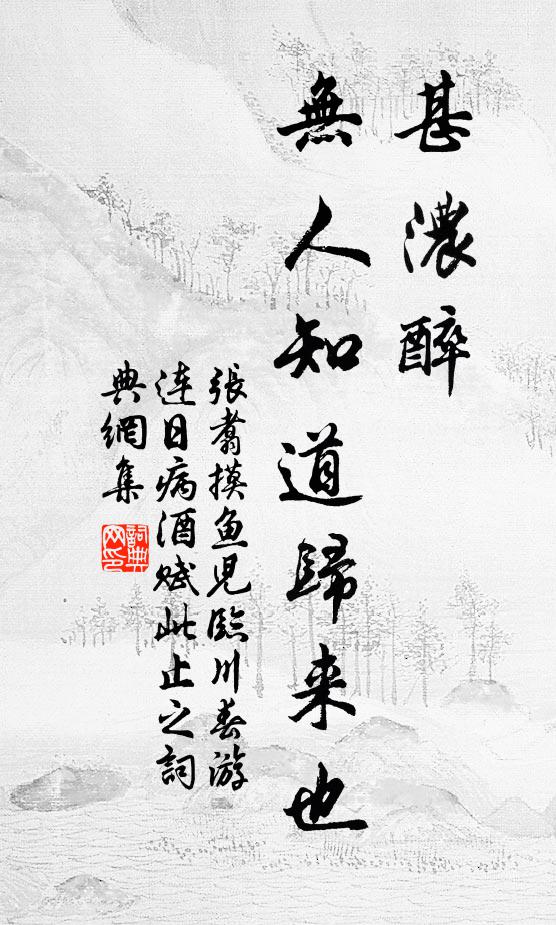 甚濃醉
無人知道歸来也
張翥摸鱼児臨川春游
连日病酒赋此止之詞
典網集
詞典网印